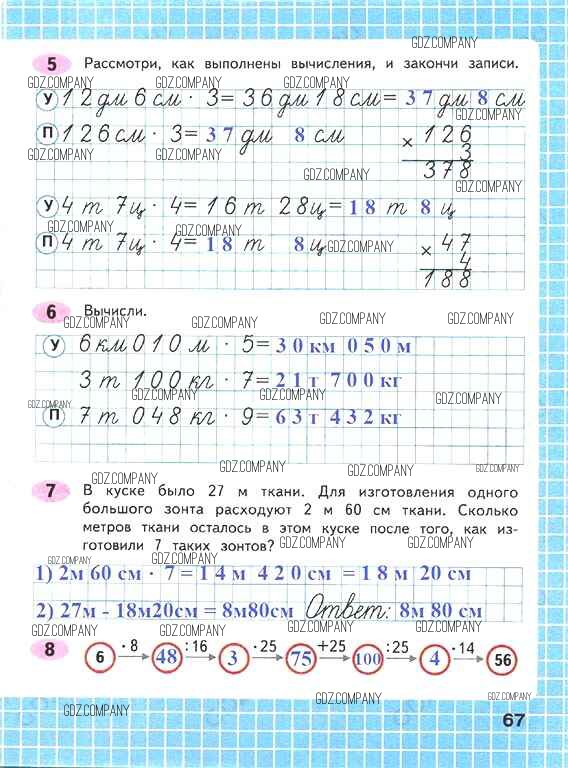 GDZ.COMPANY
5 Рассмотри, как выполнены вычисления, и закончи записи.
GDZ.COMPANY GDZ.COMPANY GDZ.COMPANY
У 12 дм 6 см · 3 = 36 дм 18 см = 37 дм 8 см
GDZ.COMPANY
П 126 см · 3 = 37 дм 8 см × 126
3
GDZ.COMPANY GDZ.COMPANY
378
GDZ.COMPANY
GDZ.COMPANY
У 4 т 7 ц · 4 = 16 т 28 ц = 18 т 8 ц
GDZ.COMPANY GDZ.COMPANY
П 4 т 7 ц · 4 = 18 т 8 ц × 47
GDZ.COMPANY
4
188
6 Вычисли.
GDZ.COMPANY GDZ.COMPANY GDZ.COMPANY GDZ.COMPANY
У 6 км 010 м · 5 = 30 км 050 м
3 т 100 кг · 7 = 21 т 700 кг
GDZ.COMPANY GDZ.COMPANY GDZ.COMPANY GDZ.COMPANY
П 7 т 048 кг · 9 = 63 т 432 кг
GDZ.COMPANY GDZ.COMPANY GDZ.COMPANY
7 В куске было 27 м ткани. Для изготовления одного
большого зонта расходуют 2 м 60 см ткани. Сколько
метров ткани осталось в этом куске после того, как из-
готовили 7 таких зонтов?
GDZ.COMPANY GDZ.COMPANY
GDZ.COMPANY GDZ.COMPANY GDZ.COMPANY
1) 2м 60 см · 7 = 14 м 420 см = 18 м 20 см
2) 27м - 18м20см = 8м80см Ответ: 8м 80 см
GDZ.COMPANY GDZ.COMPANY GDZ.COMPANY GDZ.COMPANY
8 6 · 8 48 : 16 3 · 25 75 + 25 100 : 25 4 · 14 56
GDZ.COMPANY GDZ.COMPANY GDZ.COMPANY
67